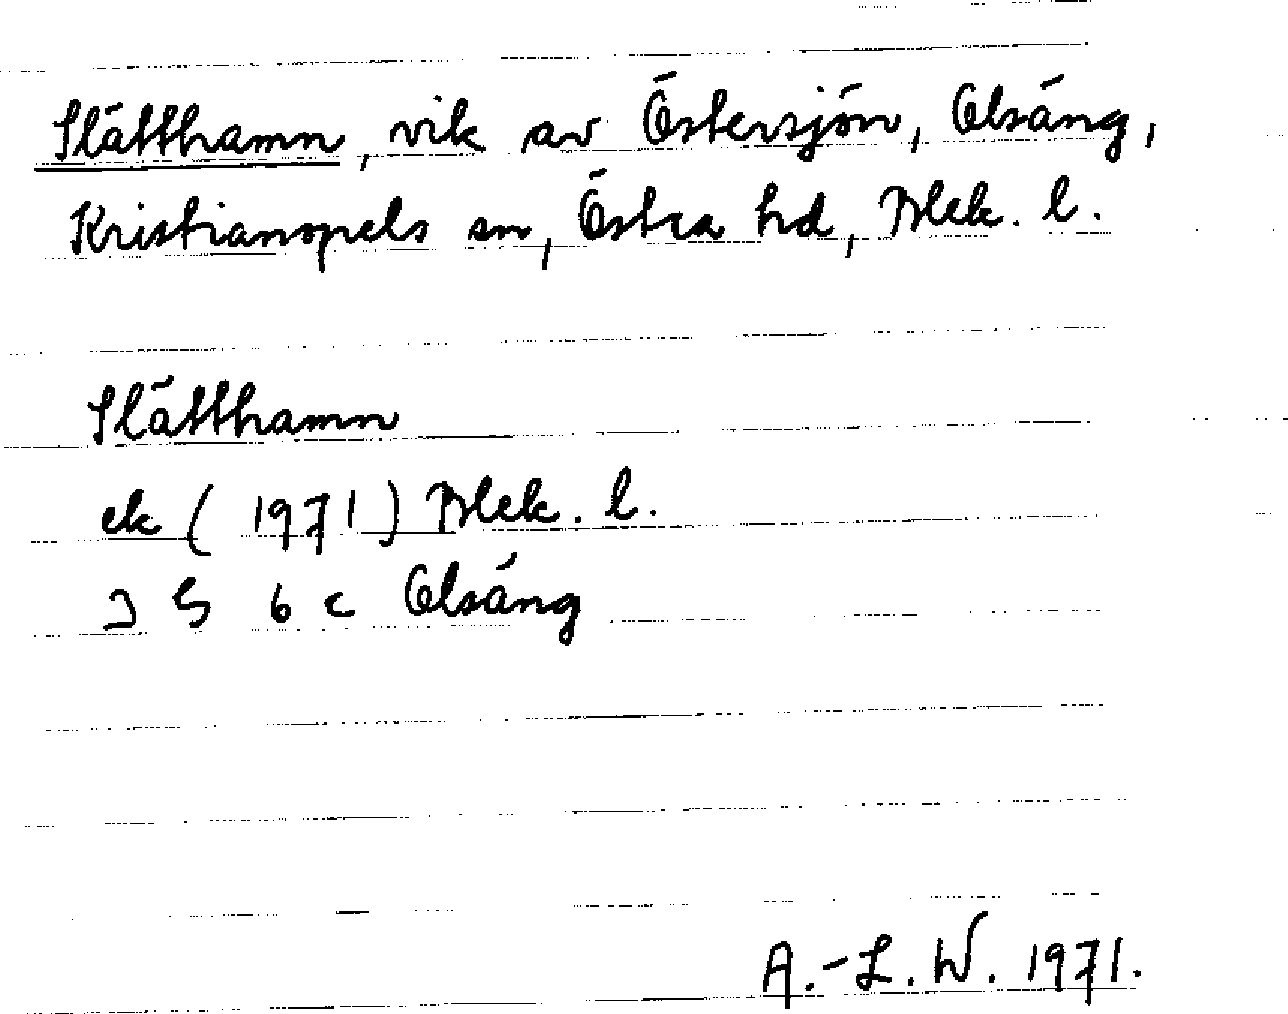 Slätthamn, vik av Östersjön, Olsäng,
Kristianopels sn, Östra hd, Blek. l.
Slätthamn
ek (1971) Blek. l.
3 G 6 c Olsäng
A.-L. W. 1971.